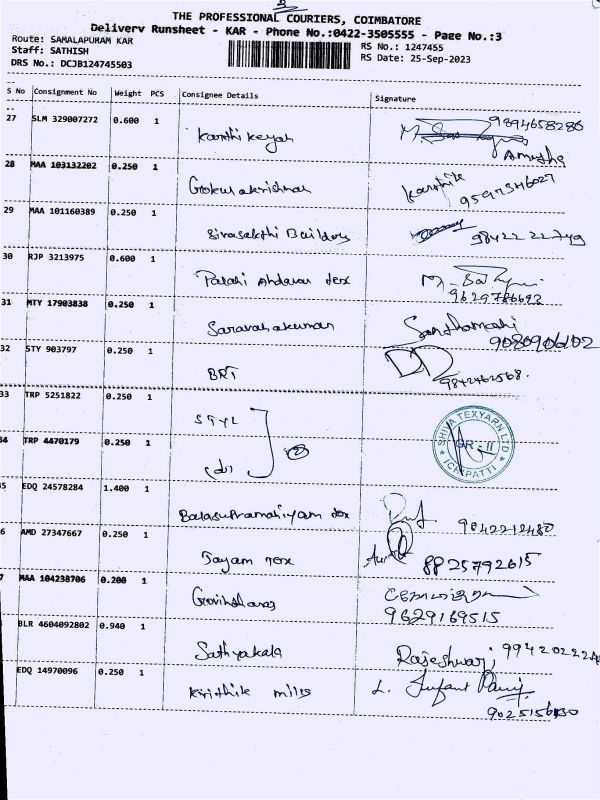 THE PROFESSIONAL COURIERS, COIMBATORE
Delivery Runsheet - KAR - Phone No.:0422-3505555 - Page No.:3
Route: SAMALAPURAM KAR
Staff: SATHISH
DRS No.: DCJB124745503
RS No.: 1247455
RS Date: 25-Sep-2023
S No Consignment No Weight PCS Consignee Details Signature
27 SLM 329007272 0.600 1 Karthikeyan 9894658286
Anusha
28 MAA 103132202 0.250 1 Gokulakrishnan Karthik
29 MAA 101160389 0.250 1 Sivasakthi Builders 98422 22749
30 RJP 3213975 0.600 1 Palani Andavar tex
9629786692
31 MTY 17903838 0.250 1 Saravanakumar
32 STY 903797 0.250 1 BRT
9842462568.
33 TRP 5251822 0.250 1 STYL
34 TRP 4470179 0.250 1
SHIVA TEXYARN LTD
GR-II
ICHIPATTI
35 EDQ 24578284 1.400 1 Balasubramaniyam tex 9842212480
6 AMD 27347667 0.250 1 Jayam Tex 8825792615
7 MAA 104238706 0.200 1 Govindaraj
9629169515
BLR 4604092802 0.940 1 Sathyakala Rajeshwari
EDQ 14970096 0.250 1 Krithik mills